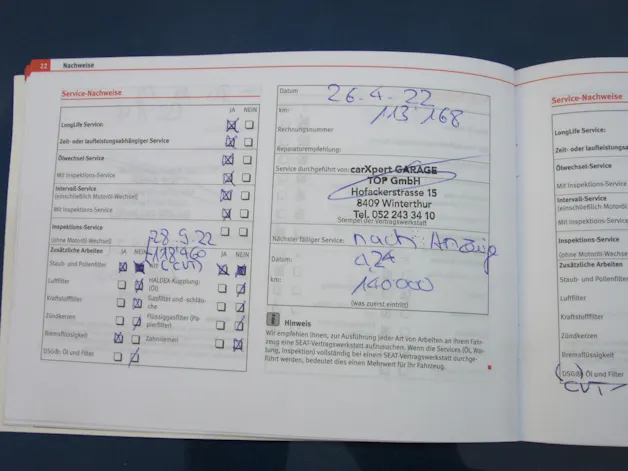 22 Nachweise
Service-Nachweise
JA NEIN
LongLife Service:
Zeit- oder laufleistungsabhängiger Service
Ölwechsel Service:
Mit Inspektions-Service
Intervall-Service
(einschließlich Motoröl-Wechsel)
Mit Inspektions-Service
Inspektions-Service
(ohne Motoröl-Wechsel)
28.9.22
118'460
(CVT)
Zusätzliche Arbeiten JA NEIN JA NEIN
Staub- und Pollenfilter
Luftfilter
HALDEX-Kupplung:
(Öl)
Kraftstofffilter
Gasfilter und -schläu-
che
Zündkerzen
Flüssiggasfilter (Pa-
pierfilter)
Bremsflüssigkeit
Zahnriemen
DSG®: Öl und Filter
Datum 26.4.22
km: 113'168
Rechnungsnummer
Reparaturempfehlung:
Service durchgeführt von:
carXpert GARAGE
TOP GmbH
Hofackerstrasse 15
8409 Winterthur
Tel. 052 243 34 10
Stempel der Vertragswerkstatt
Nächster fälliger Service: nach: Anzeige
Datum: 4.24
km: 140'000
(was zuerst eintritt)
Hinweis
Wir empfehlen Ihnen, zur Ausführung jeder Art von Arbeiten an Ihrem Fahr-
zeug eine SEAT-Vertragswerkstatt aufzusuchen. Wenn die Services (Öl, War-
tung, Inspektion) vollständig bei einem SEAT-Vertragswerkstatt durchge-
führt werden, bedeutet dies einen Mehrwert für Ihr Fahrzeug.
Service-Nachweise
LongLife Service:
Zeit- oder laufleistungs
Ölwechsel-Service:
Mit Inspektions-Service
Intervall-Service
(einschließlich Motoröl-
Mit Inspektions-Service
Inspektions-Service
(ohne Motoröl-Wechsel)
Zusätzliche Arbeiten
Staub- und Pollenfilter
Luftfilter
Kraftstofffilter
Zündkerzen
Bremsflüssigkeit
DSG®: Öl und Filter
CVT